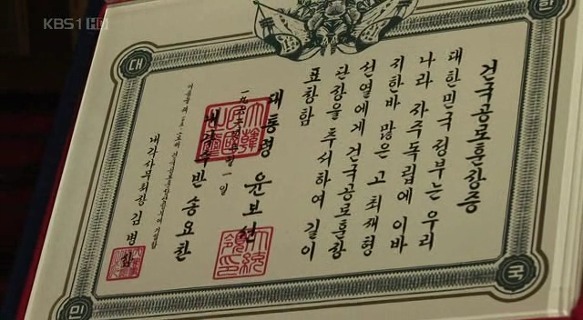 KBS1 HD
대
한
민
국
건국공로훈장증
대한민국 정부는 우리
나라 자주독립에 이바
지한바 많은 고 최재형
선열에게 건국공로훈장
단장을 추서하여 길이
표창함
대통령 윤보선
내각수반 송요찬
내각사무처장 김병삼